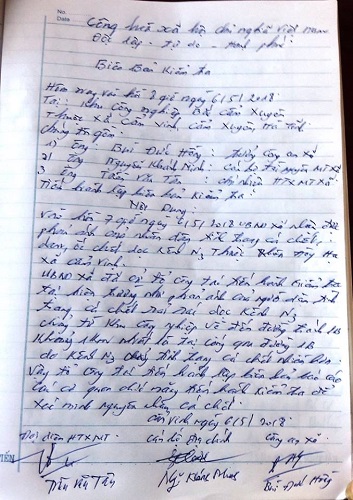 No.
Date
Cộng hoà xã hội chủ nghĩa Việt Nam
Độc lập - Tự do - Hạnh phúc
Biên Bản Kiểm tra
Hôm nay vào hồi 8 giờ ngày 6/5/2018.
Tại: Khu Công nghiệp Bắc Cẩm Xuyên
Thuộc xã Cẩm Vịnh, Cẩm Xuyên, Hà Tĩnh
Chúng tôi gồm.
1) Ông Bùi Đức Hồng: Trưởng Công an xã
2) Ông Nguyễn Khánh Ninh: Cán bộ tài nguyên MT xã
3 Ông Trần Văn Tần: chủ nhiệm HTX MT xã.
Tiến hành lập biên bản kiểm tra.
Nội Dung:
vào hồi 7 giờ ngày 6/5/2018 UBND xã nhận được
phản ánh của nhân dân tình trạng cá chết,
dọc kênh N3 thuộc
xã Cẩm Vịnh.
UBND xã đã cử tổ công tác tiến hành kiểm tra
tại hiện trường như phản ánh của người dân tình
trạng cá chết rải rác dọc kênh N3
chảy từ khu công nghiệp về đến đường tránh 1B
khoảng 1km nhất là tại cống qua đường 1B
do kênh N3 chảy tình trạng cá chết nhiều hơn.
Vậy tổ công tác tiến hành lập biên bản báo cáo
các cơ quan chức năng tiến hành kiểm tra để
xác minh nguyên nhân cá chết.
Cẩm Vịnh ngày 6/5/2018.
Đại diện HTXMT. cán bộ địa chính Công an xã.
Trần Văn Tần Ng Khánh Ninh Bùi Đức Hồng